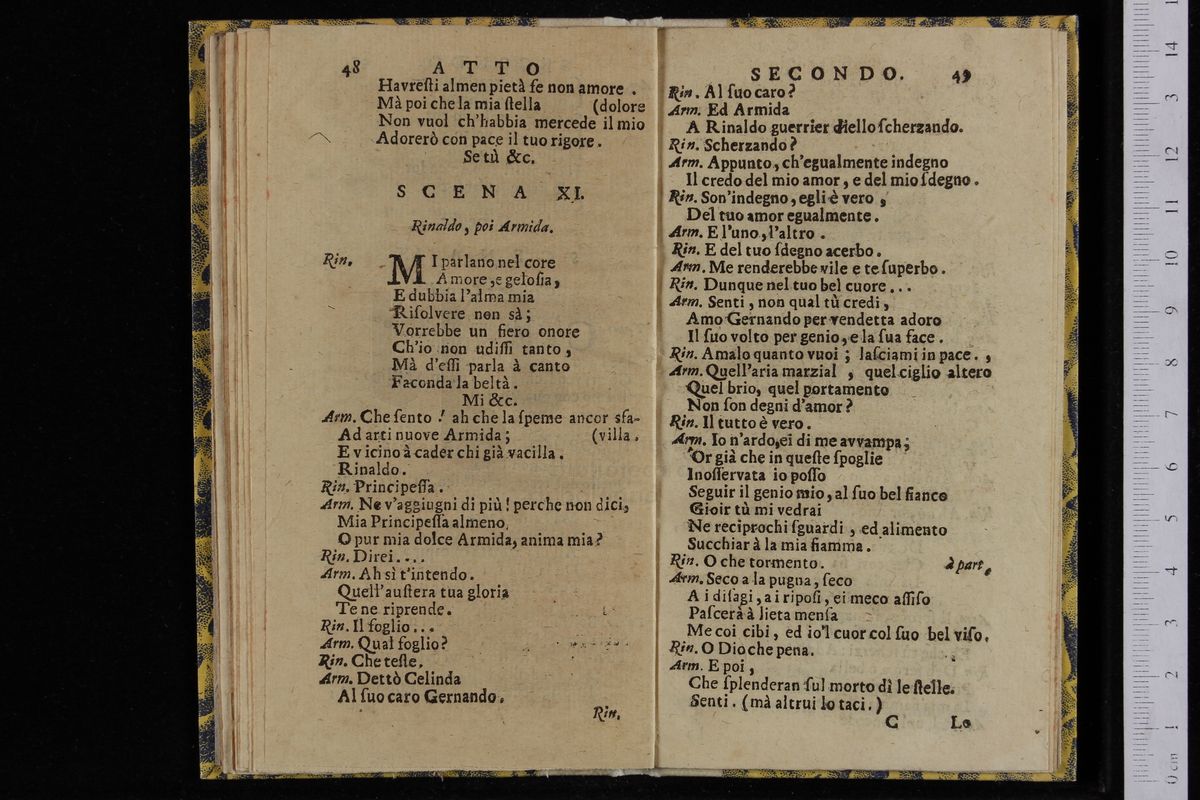 48 ATTO
Havreſti almen pietà ſe non amore .
Mà poi che la mia ſtella (dolore
Non vuol ch'habbia mercede il mio
Adorerò con pace il tuo rigore .
Se tù &c.
SCENA XI.
Rinaldo, poi Armida.
Rin. MI parlano nel core
Amore, e geloſia,
E dubbia l'alma mia
Riſolvere non sà;
Vorrebbe un fiero onore
Ch'io non udiſſi tanto,
Mà d'eſſi parla à canto
Faconda la beltà.
Mi &c.
Arm. Che ſento ! ah che la ſpeme ancor sfa-
Ad arti nuove Armida; (villa.
E vicino à cader chi già vacilla.
Rinaldo.
Rin. Principeſſa.
Arm. Ne v'aggiugni di più! perche non dici,
Mia Principeſſa almeno,
O pur mia dolce Armida, anima mia?
Rin. Direi....
Arm. Ah sì t'intendo.
Quell'auſtera tua gloria
Te ne riprende.
Rin. Il foglio...
Arm. Qual foglio?
Rin. Che teſte.
Arm. Dettò Celinda
Al ſuo caro Gernando.
Rin.
SECONDO. 49
Rin. Al ſuo caro?
Arm. Ed Armida
A Rinaldo guerrier diello ſcherzando.
Rin. Scherzando?
Arm. Appunto, ch'egualmente indegno
Il credo del mio amor, e del mio ſdegno.
Rin. Son'indegno, egli è vero,
Del tuo amor egualmente.
Arm. E l'uno, l'altro.
Rin. E del tuo ſdegno acerbo.
Arm. Me renderebbe vile e te ſuperbo.
Rin. Dunque nel tuo bel cuore...
Arm. Senti, non qual tù credi,
Amo Gernando per vendetta adoro
Il ſuo volto per genio, e la ſua face.
Rin. Amalo quanto vuoi; laſciami in pace.,
Arm. Quell'aria marzial, quel ciglio altero
Quel brio, quel portamento
Non ſon degni d'amor?
Rin. Il tutto è vero.
Arm. Io n'ardo, ei di me avvampa;
Or già che in queſte ſpoglie
Inoſſervata io poſſo
Seguir il genio mio, al ſuo bel fianco
Gioir tù mi vedrai
Ne reciprochi ſguardi, ed alimento
Succhiar à la mia fiamma.
Rin. O che tormento. à part.
Arm. Seco a la pugna, ſeco
A i diſagi, a i ripoſi, ei meco aſſiſo
Paſcerà à lieta menſa
Me coi cibi, ed io'l cuor col ſuo bel viſo.
Rin. O Dio che pena.
Arm. E poi,
Che ſplenderan ſul morto dì le ſtelle.
Senti. (mà altrui lo taci.)
C Lo
0 cm 1 2 3 4 5 6 7 8 9 10 11 12 13 14